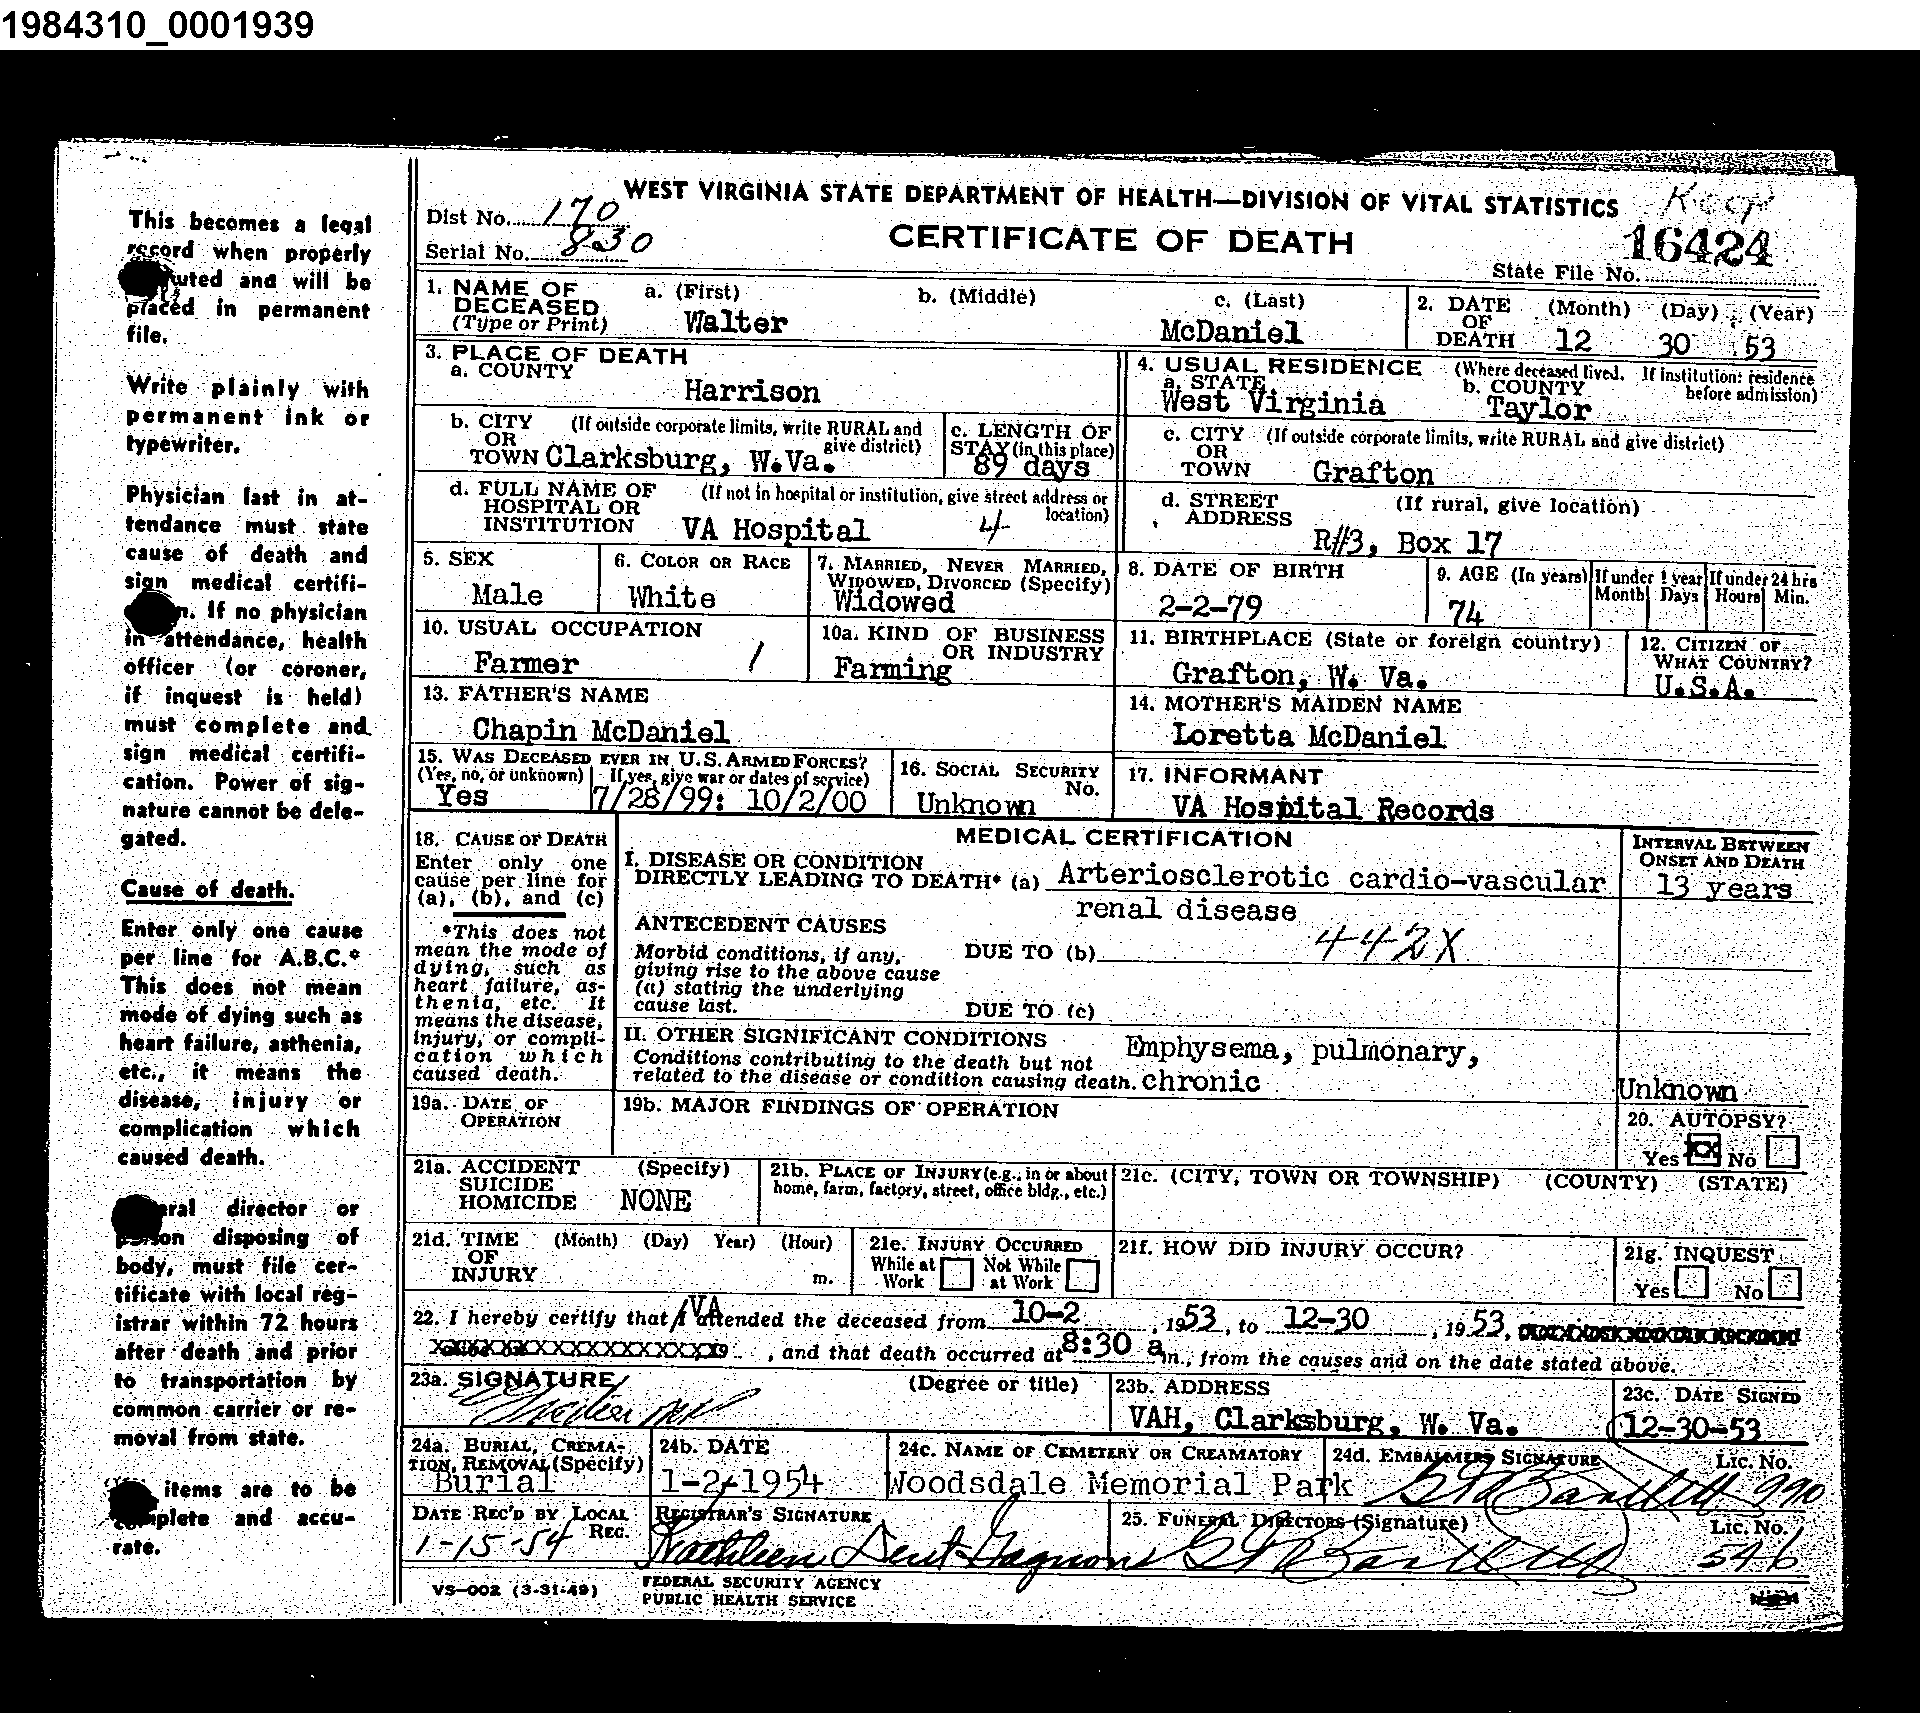 1984310_0001939
This becomes a legal
record when properly
uted and will be
placed in permanent
file.
Write plainly with
permanent ink or
typewriter.
Physician last in at-
tendance must state
cause of death and
sign medical certifi-
n. If no physician
in attendance, health
officer (or coroner,
if inquest is held)
must complete and
sign medical certifi-
cation. Power of sig-
nature cannot be dele-
gated.
Cause of death.
Enter only one cause
per line for A.B.C.*
This does not mean
mode of dying such as
heart failure, asthenia,
etc., it means the
disease, injury or
complication which
caused death.
eral director or
person disposing of
body, must file cer-
tificate with local reg-
istrar within 72 hours
after death and prior
to transportation by
common carrier or re-
moval from state.
items are to be
complete and accu-
rate.
WEST VIRGINIA STATE DEPARTMENT OF HEALTH—DIVISION OF VITAL STATISTICS
Dist No. 170
CERTIFICATE OF DEATH
16424
Serial No. 830
State File No.
1. NAME OF DECEASED (Type or Print)
a. (First) Walter
b. (Middle)
c. (Last) McDaniel
2. DATE OF DEATH (Month) (Day) (Year)
12 30 53
3. PLACE OF DEATH
a. COUNTY Harrison
4. USUAL RESIDENCE (Where deceased lived. If institution: residence before admission)
a. STATE West Virginia
b. COUNTY Taylor
b. CITY OR TOWN (If outside corporate limits, write RURAL and give district)
Clarksburg, W.Va.
c. LENGTH OF STAY (in this place)
89 days
c. CITY OR TOWN (If outside corporate limits, write RURAL and give district)
Grafton
d. FULL NAME OF HOSPITAL OR INSTITUTION (If not in hospital or institution, give street address or location)
VA Hospital 4
d. STREET ADDRESS (If rural, give location)
R#3, Box 17
5. SEX
Male
6. COLOR OR RACE
White
7. MARRIED, NEVER MARRIED, WIDOWED, DIVORCED (Specify)
Widowed
8. DATE OF BIRTH
2-2-79
9. AGE (In years)
74
If under 1 year Month Days
If under 24 hrs Hours Min.
10. USUAL OCCUPATION
Farmer /
10a. KIND OF BUSINESS OR INDUSTRY
Farming
11. BIRTHPLACE (State or foreign country)
Grafton, W. Va.
12. CITIZEN OF WHAT COUNTRY?
U.S.A.
13. FATHER'S NAME
Chapin McDaniel
14. MOTHER'S MAIDEN NAME
Loretta McDaniel
15. WAS DECEASED EVER IN U.S. ARMED FORCES?
(Yes, no, or unknown) If yes, give war or dates of service)
Yes 7/28/99: 10/2/00
16. SOCIAL SECURITY No.
Unknown
17. INFORMANT
VA Hospital Records
18. CAUSE OF DEATH
Enter only one
cause per line for
(a), (b), and (c)
*This does not
mean the mode of
dying, such as
heart failure, as-
thenia, etc. It
means the disease,
injury, or compli-
cation which
caused death.
MEDICAL CERTIFICATION
INTERVAL BETWEEN ONSET AND DEATH
I. DISEASE OR CONDITION
DIRECTLY LEADING TO DEATH* (a) Arteriosclerotic cardio-vascular
13 years
renal disease
ANTECEDENT CAUSES
442X
Morbid conditions, if any, DUE TO (b)
giving rise to the above cause
(a) stating the underlying
cause last. DUE TO (c)
II. OTHER SIGNIFICANT CONDITIONS
Conditions contributing to the death but not
related to the disease or condition causing death.
Emphysema, pulmonary,
chronic
Unknown
19a. DATE OF OPERATION
19b. MAJOR FINDINGS OF OPERATION
20. AUTOPSY?
Yes XX No
21a. ACCIDENT SUICIDE HOMICIDE (Specify)
NONE
21b. PLACE OF INJURY (e.g., in or about home, farm, factory, street, office bldg., etc.)
21c. (CITY, TOWN OR TOWNSHIP) (COUNTY) (STATE)
21d. TIME OF INJURY (Month) (Day) Year) (Hour)
m.
21e. INJURY OCCURRED
While at Work Not While at Work
21f. HOW DID INJURY OCCUR?
21g. INQUEST
Yes No
22. I hereby certify that VA attended the deceased from 10-2, 1953, to 12-30, 1953,
, and that death occurred at 8:30 a m., from the causes and on the date stated above.
23a. SIGNATURE (Degree or title)
23b. ADDRESS
VAH, Clarksburg, W. Va.
23c. DATE SIGNED
12-30-53
24a. BURIAL, CREMA-
TION, REMOVAL (Specify)
Burial
24b. DATE
1-2-1954
24c. NAME OF CEMETERY OR CREAMATORY
Woodsdale Memorial Park
24d. EMBALMERS SIGNATURE Lic. No.
Bartlett 990
DATE REC'D BY LOCAL REG.
1-15-54
REGISTRAR'S SIGNATURE
Kathleen Dent
25. FUNERAL DIRECTORS (Signature) Lic. No.
Bartlett 546
VS-002 (3-31-49)
FEDERAL SECURITY AGENCY
PUBLIC HEALTH SERVICE